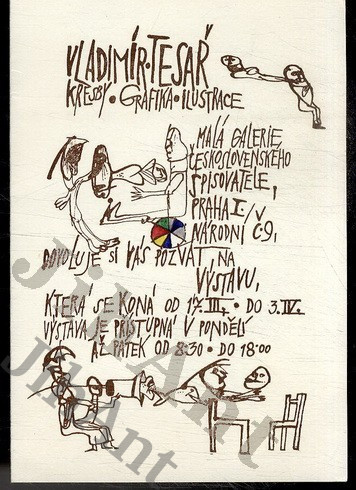 VLADIMÍR·TESAŘ
KRESBY·GRAFIKA·ILUSTRACE
MALÁ GALERIE
ČESKOSLOVENSKÉHO
SPISOVATELE,
PRAHA I/V
NÁRODNÍ Č.9,
DOVOLUJE SI VÁS POZVAT, NA
VÝSTAVU,
KTERÁ SE KONÁ OD 17.III. DO 3.IV.
VÝSTAVA JE PŘÍSTUPNÁ V PONDĚLÍ
AŽ PÁTEK OD 8·30· DO 18·00
JiriAnt
JiriAnt